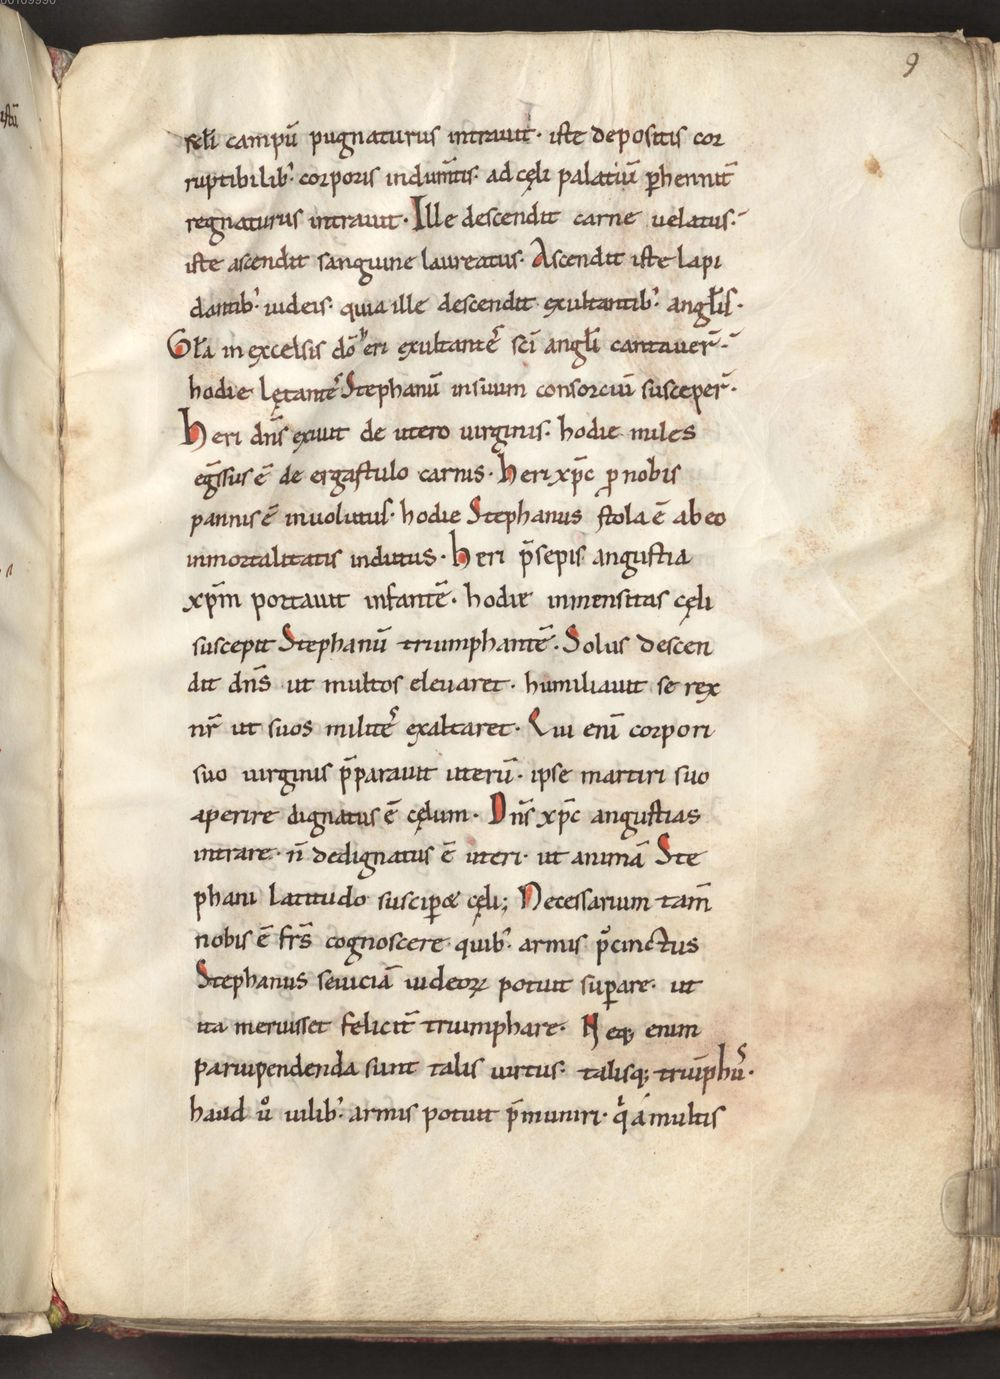 9
scłi campū pugnaturus intrauit· iste depositis cor
ruptibilib᾿· corporis indum̄tis· ad cęli palatiū ꝑhennit̄
regnaturus intrauit· Ille descendit carne uelatus·
iste ascendit sanguine laureatus· Ascendit iste lapi
dantib᾿ iudeis· quia ille descendit exultantib᾿ angłis·
Gła in excelsis dō heri exultantes̄ sci̅ angłi cantauer̄·
hodie lętantes̄ Stephanū in suum consorciū susceper̄·
heri dn̄s exiuit de utero uirginis· hodie miles
egs̄sus ē de ergastulo carnis· heri xp̄c ꝓ nobis
pannis ē inuolutus· hodie Stephanus stola ē ab eo
inmortalitatis indutus· heri p̄sepis angustia
xp̄m portauit infantē· hodie inmensitas cęli
suscepit Stephanū triumphantē· Solus descen
dit dn̄s ut multos eleuaret· humiliauit se rex
nr̄ ut suos milites̄ exaltaret· Qui eni̅ corpori
suo uirginis p̄parauit uterū· ipse martiri suo
aperire dignatus ē cęlum· Dn̄s xp̄c angustias
intrare· n̄ dedignatus ē uteri· ut animā Ste
phani latitudo susciꝑet cęli; Necessarium tam̄
nobis ē frs̄ cognoscere quib᾿ armis p̊cinctus
Stephanus seuiciā iudeoꝝ potuit suꝑare· ut
ita meruisset felicit̄ triumphare· Neq; enim
paruipendenda sunt talis uirtus· talisq; triūphus̄·
haud uͦ uilib᾿ armis potuit p̄muniri· qͥ á multis